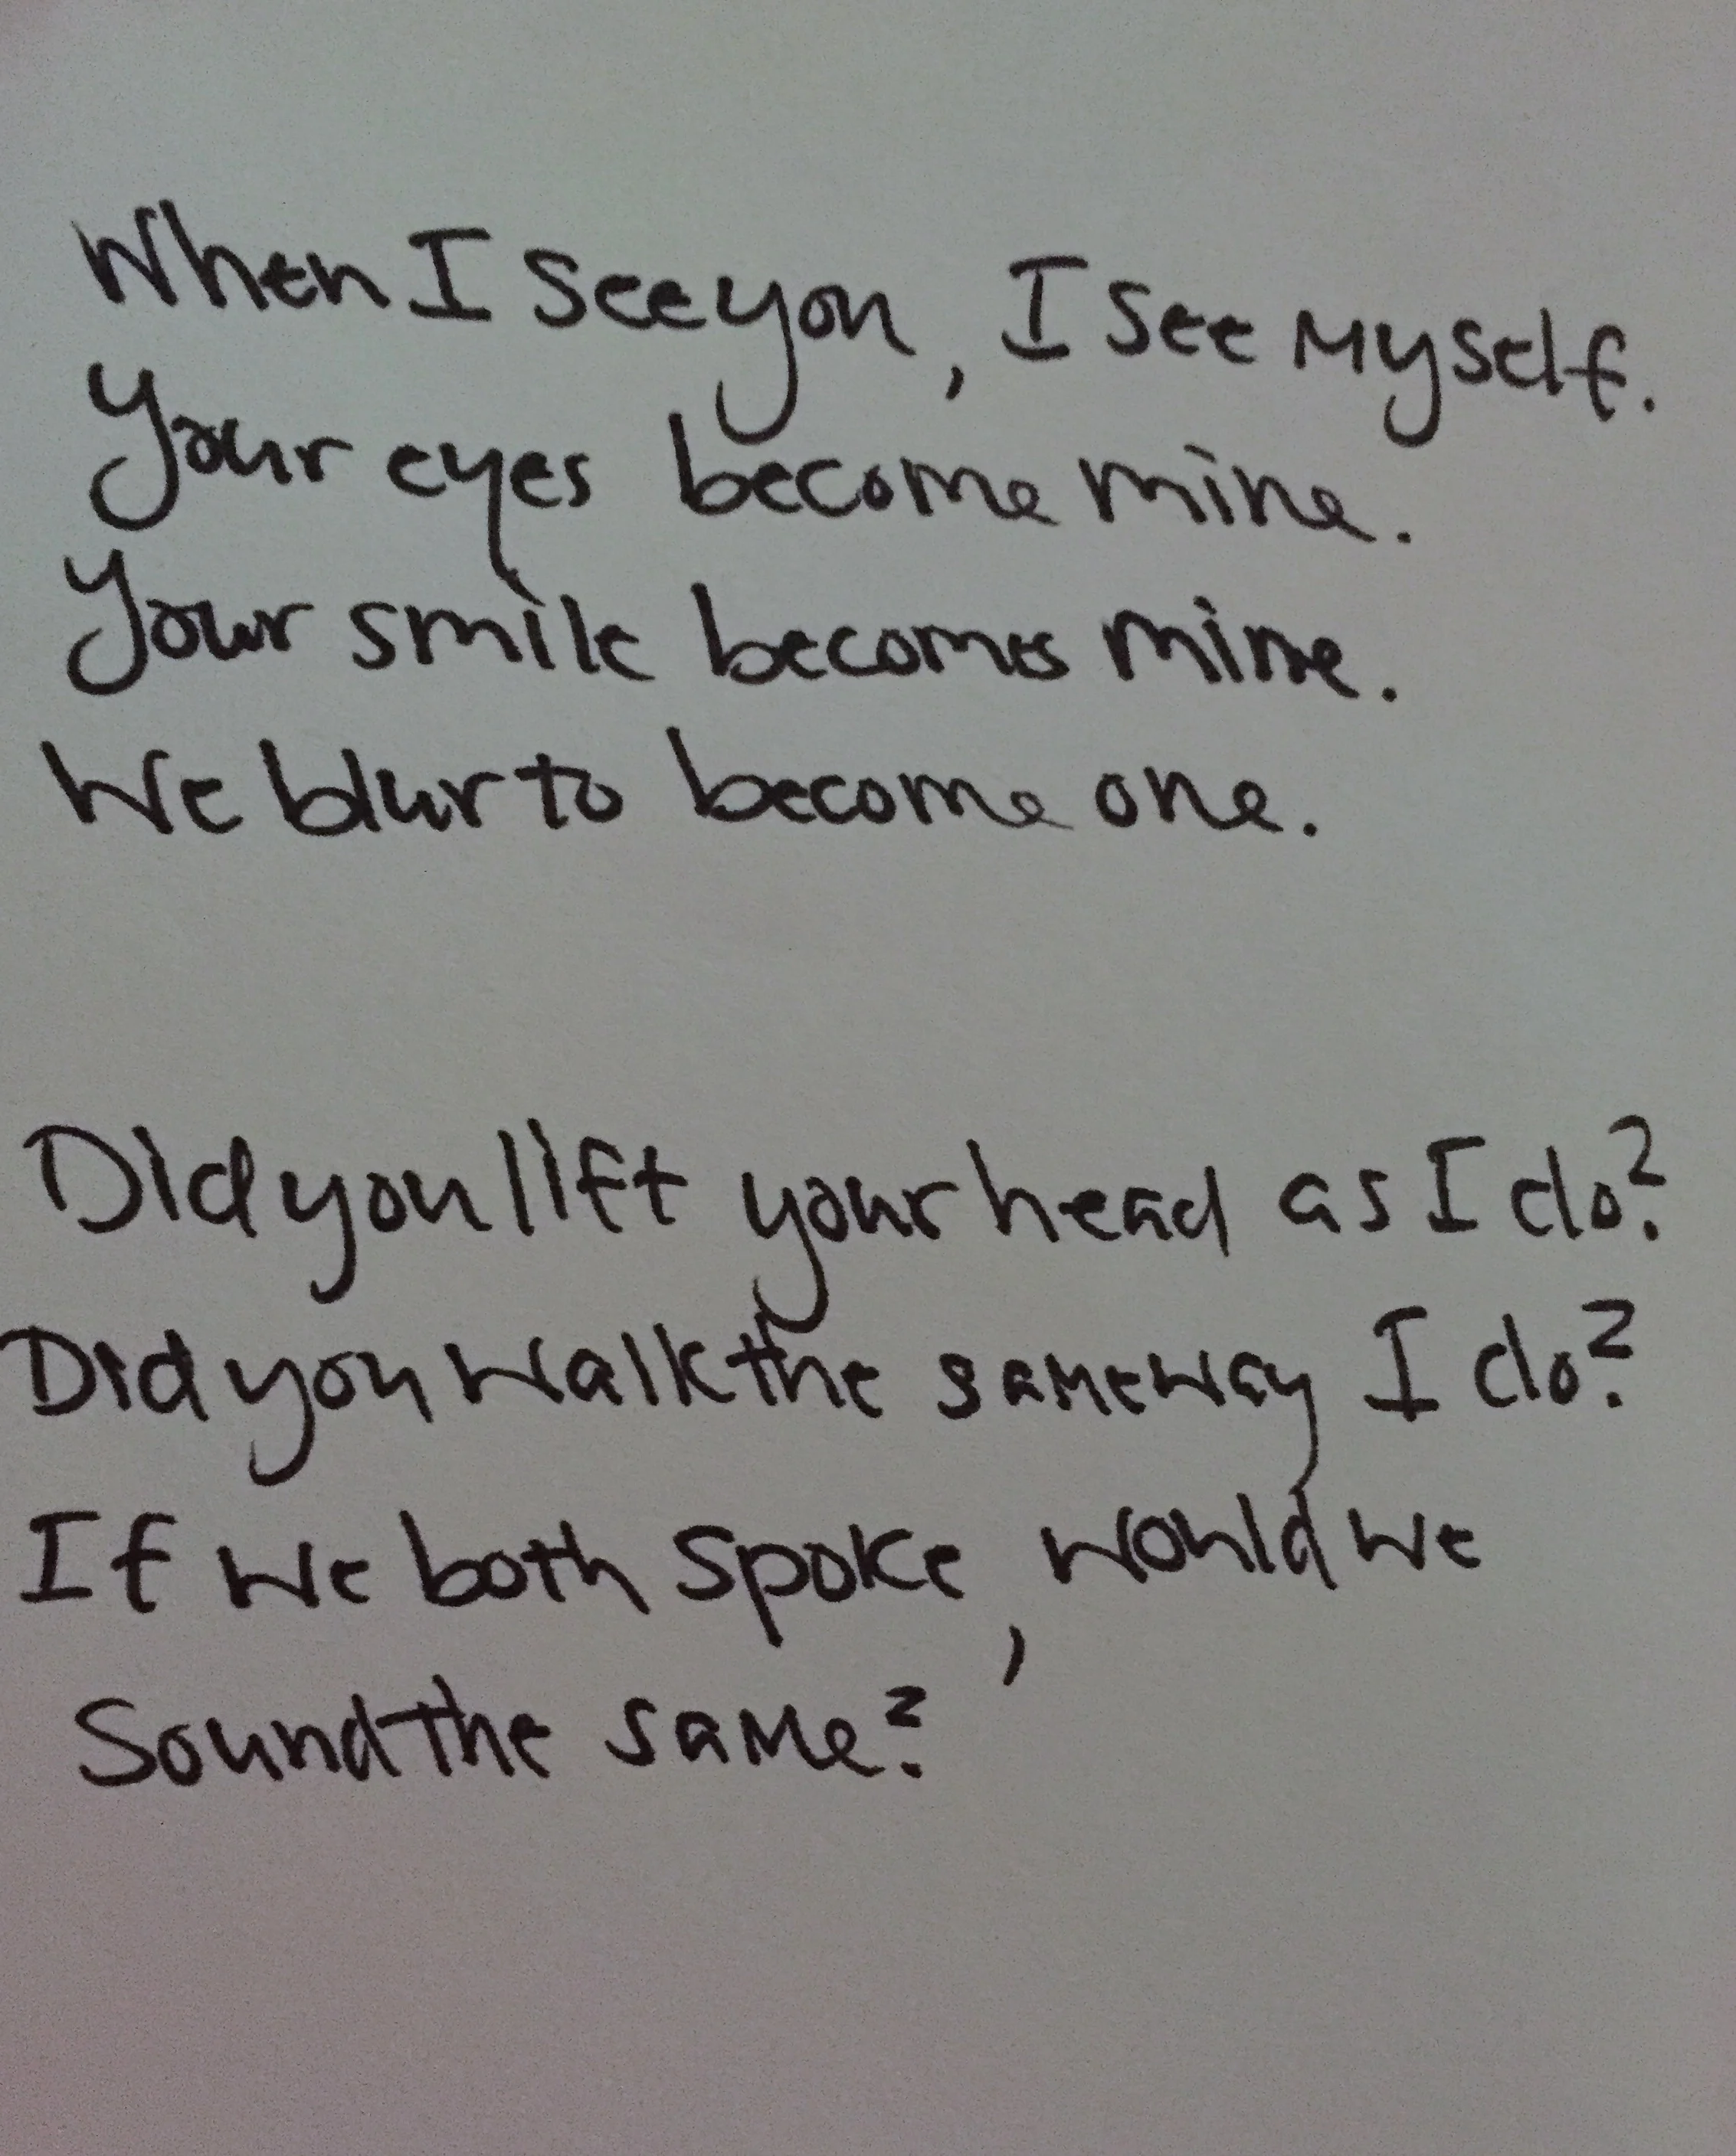 When I see you, I see myself.
Your eyes become mine.
Your smile becomes mine.
We blur to become one.
Did you lift your head as I do?
Did you walk the same way I do?
If we both spoke, would we
Sound the same?